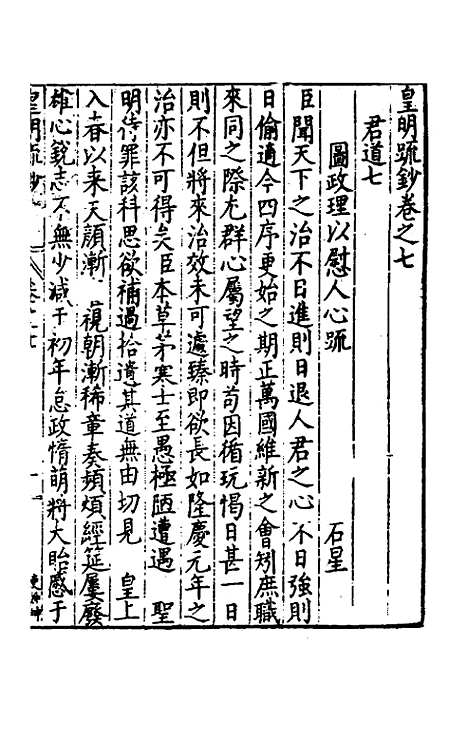 皇明疏鈔卷之七
君道七
圖政理以慰人心疏　石星
臣聞天下之治不日進則日退人君之心不日強則
日偷適今四序更始之期正萬國維新之會矧庶職
來同之際尤群心屬望之時苟因循玩愒日甚一日
則不但將來治效未可遽臻即欲長如隆慶元年之
治亦不可得矣臣本草茅寒士至愚極陋遭遇　聖
明待罪該科思欲補過拾遺其道無由切見　皇上
入春以來天顏漸　視朝漸稀章奏頻煩經筵屢廢
雄心銳志不無少減于初年怠政惰萌將大貽慼于
皇明疏鈔　卷之七　一